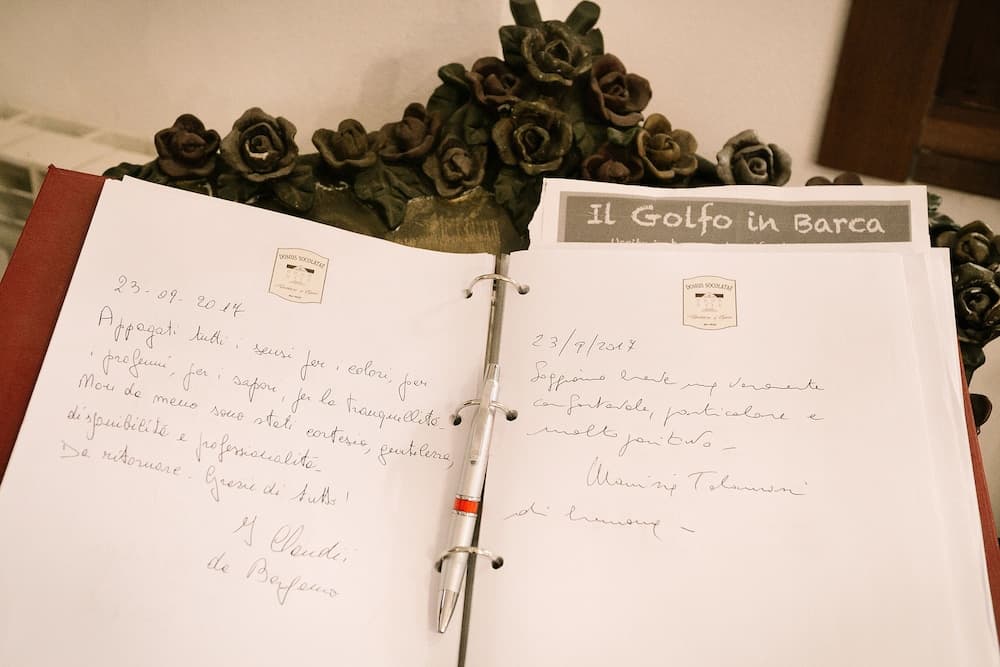 Il Golfo in Barca
DOMUS SOCOLATAE
23-09-2017
Appagati tutti i sensi per i colori, per
i profumi, per i sapori, per la tranquillità
Mon da meno sono stati cortesia, gentilezza,
disponibilità e professionalità
Da ritornare. Grazie di tutto!
da Bergamo
DOMUS SOCOLATAE
23/9/2017
Soggiorno breve ma veramente
confortevole, particolare e
molto
di